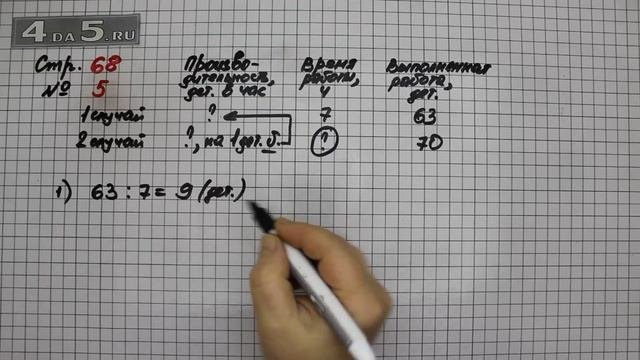 4 DA 5.RU
Стр. 68 Произво- Время Выполненная
№ 5 дительность, работы, работа,
дет. в час ч дет.
1 случай ? 7 63
2 случай ?, на 1 дет. б. ? 70
1) 63 : 7 = 9 (дет.)